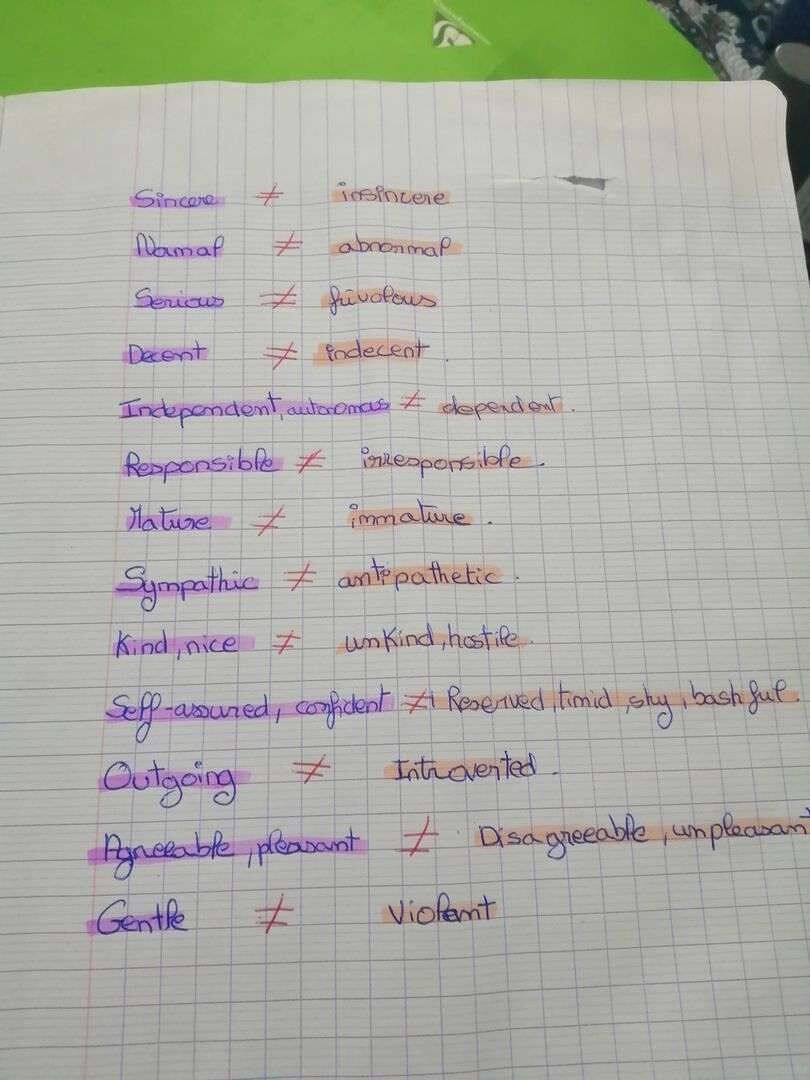 Sincere ≠ insincere
Normal ≠ abnormal
Serious ≠ frivolous
Decent ≠ indecent.
Independent, autonomous ≠ dependent.
Responsible ≠ irresponsible.
Mature ≠ immature.
Sympathic ≠ antipathetic.
Kind, nice ≠ unkind, hostile.
Self-assured, confident ≠ Reserved, timid, shy, bashful.
Outgoing ≠ Introverted.
Agreeable, pleasant ≠ Disagreeable, unpleasant
Gentle ≠ Violent